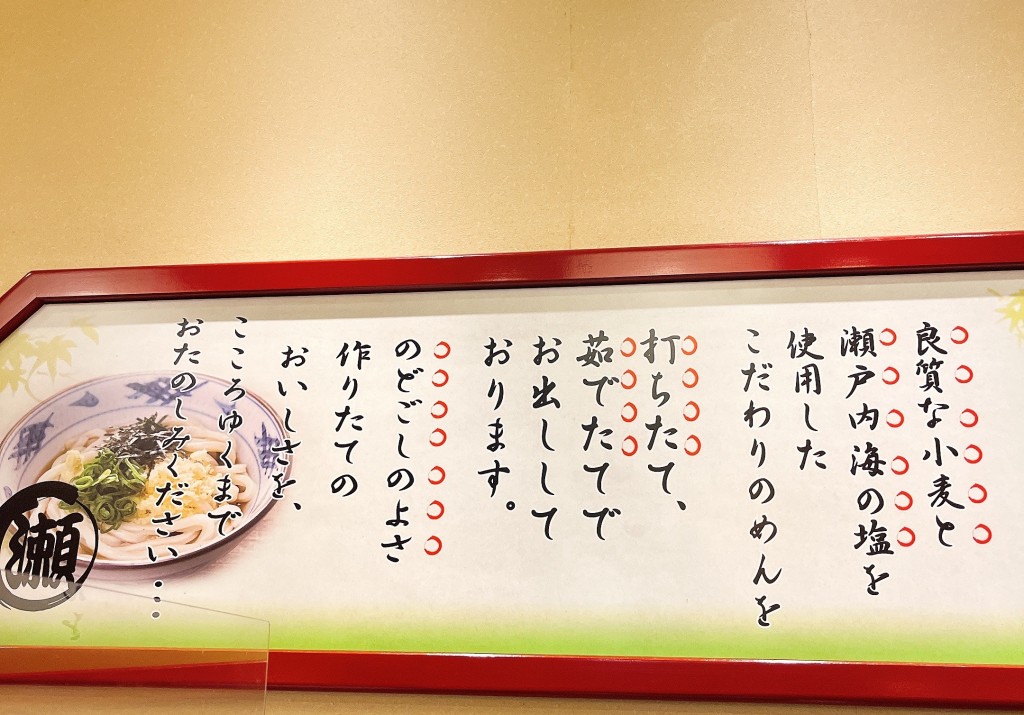 良質な小麦と
瀬戸内海の塩を
使用した
こだわりのめんを
打ちたて、
茹でたてで
お出しして
おります。
のどごしのよさ
作りたての
おいしさを、
こころゆくまで
おたのしみください…
瀬